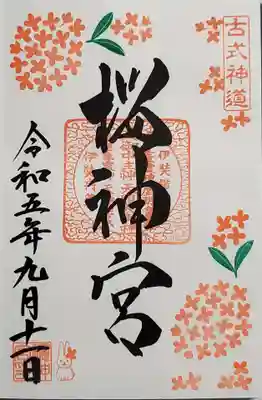 古式神道
桜神宮
令和五年九月十一日